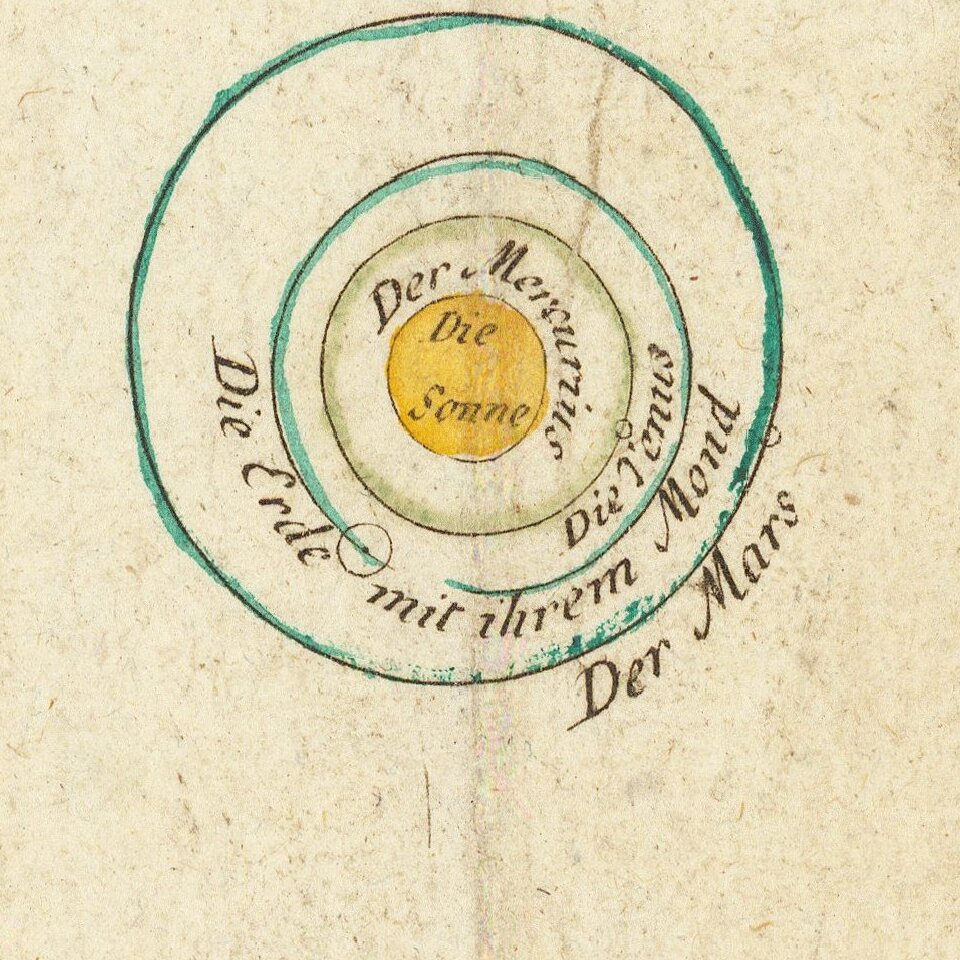 Die
Sonne
Der Mercurius
Die Venus
Die Erde mit ihrem Mond
Der Mars